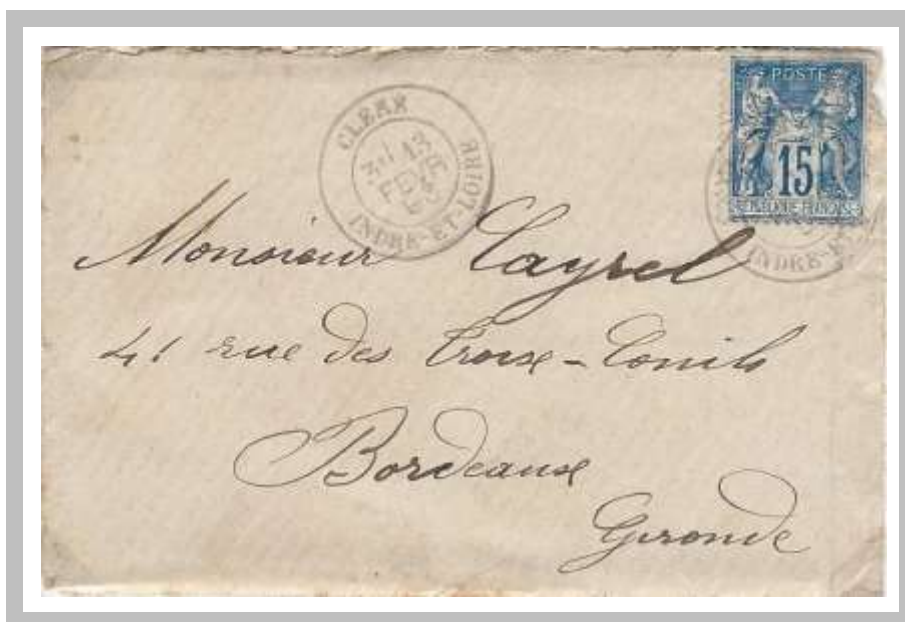 CLÉRÉ
3E 13
FEVR
INDRE-ET-LOIRE
POSTE
15
REPUBLIQUE FRANÇAISE
INDRE-ET
Monsieur Cayrel
41 rue des Trois-Conils
Bordeaux
Gironde